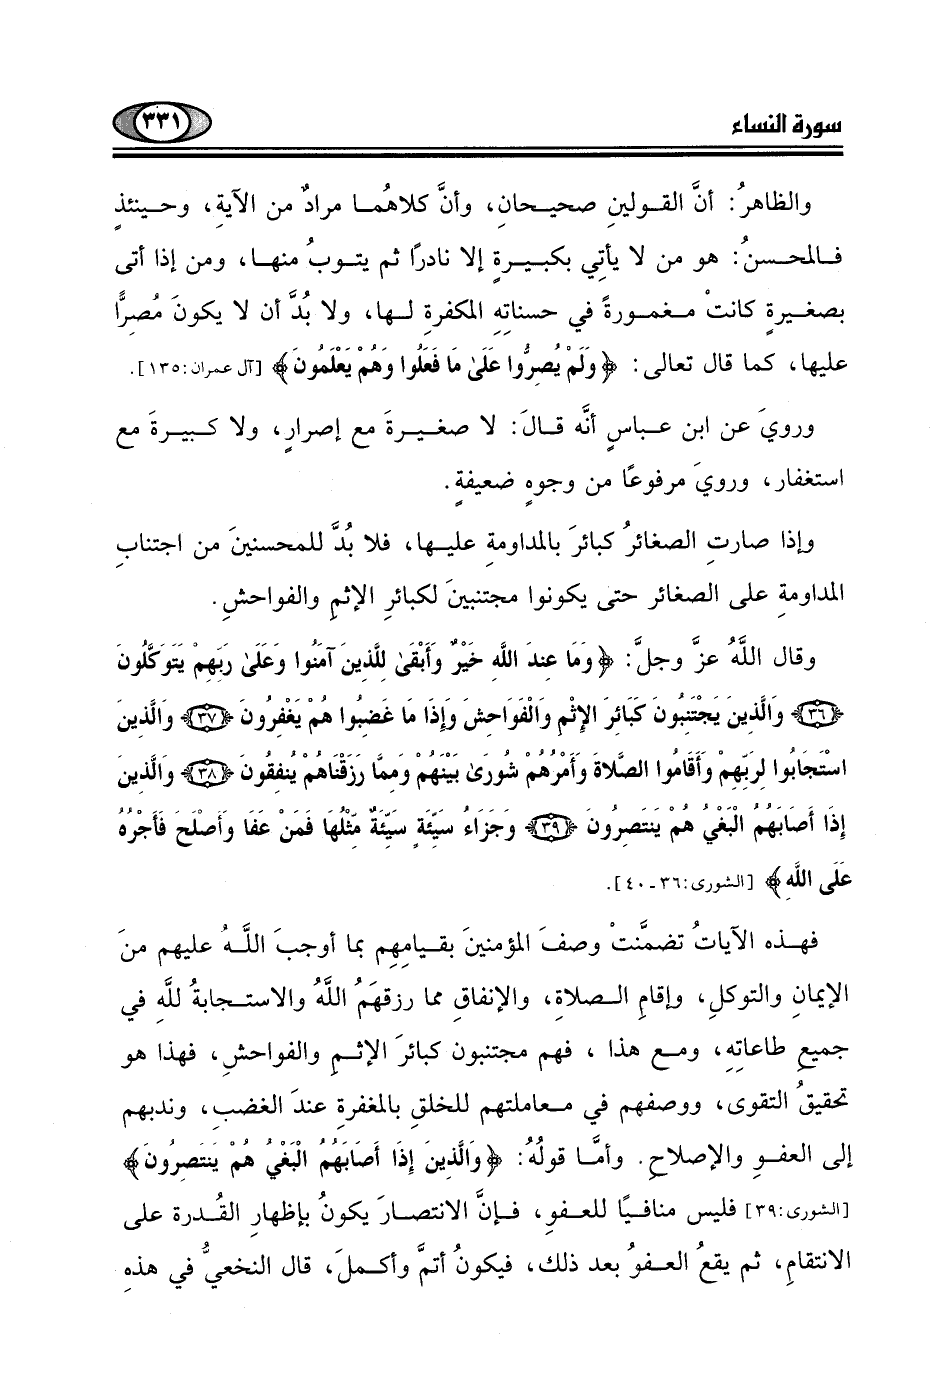 سورة النساء
٣٣١
والظاهرُ: أنَّ القولينِ صحيحانِ، وأنَّ كلاهُما مرادٌ من الآيةِ، وحينئذٍ
فالمحسنُ: هو من لا يأتِي بكبيرةٍ إلا نادرًا ثم يتوبُ منها، ومن إذا أتى
بصغيرةٍ كانتْ مغمورةً في حسناتِهِ المكفرة لها، ولا بُدَّ أن لا يكونَ مُصرًّا
عليها، كما قال تعالى: ﴿وَلَمْ يُصِرُّوا عَلَىٰ مَا فَعَلُوا وَهُمْ يَعْلَمُونَ﴾ [آل عمران: ١٣٥].
ورويَ عن ابن عباسٍ أنَّه قالَ: لا صغيرةَ مع إصرارٍ، ولا كبيرةَ مع
استغفار، ورويَ مرفوعًا من وجوهٍ ضعيفةٍ.
وإذا صارتِ الصغائرُ كبائرَ بالمداومةِ عليها، فلا بُدَّ للمحسنينَ من اجتنابِ
المداومةِ على الصغائر حتى يكونوا مجتنبينَ لكبائرِ الإثمِ والفواحشِ.
وقال اللَّهُ عزَّ وجلَّ: ﴿وَمَا عِندَ اللَّهِ خَيْرٌ وَأَبْقَىٰ لِلَّذِينَ آمَنُوا وَعَلَىٰ رَبِّهِمْ يَتَوَكَّلُونَ
﴿٣٦﴾ وَالَّذِينَ يَجْتَنِبُونَ كَبَائِرَ الإِثْمِ وَالْفَوَاحِشَ وَإِذَا مَا غَضِبُوا هُمْ يَغْفِرُونَ ﴿٣٧﴾ وَالَّذِينَ
اسْتَجَابُوا لِرَبِّهِمْ وَأَقَامُوا الصَّلاةَ وَأَمْرُهُمْ شُورَىٰ بَيْنَهُمْ وَمِمَّا رَزَقْنَاهُمْ يُنفِقُونَ ﴿٣٨﴾ وَالَّذِينَ
إِذَا أَصَابَهُمُ الْبَغْيُ هُمْ يَنتَصِرُونَ ﴿٣٩﴾ وَجَزَاءُ سَيِّئَةٍ سَيِّئَةٌ مِّثْلُهَا فَمَنْ عَفَا وَأَصْلَحَ فَأَجْرُهُ
عَلَى اللَّهِ﴾ [الشورى: ٣٦ـ٤٠].
فهذه الآياتُ تضمَّنتْ وصفَ المؤمنينَ بقيامِهِم بما أوجبَ اللَّهُ عليهم منَ
الإيمانِ والتوكلِ، وإقامِ الصلاةِ، والإنفاقِ مما رزقهَمُ اللَّهُ والاستجابةُ للَّهِ في
جميعِ طاعاتِهِ، ومع هذا ، فهم مجتنبون كبائرَ الإثمِ والفواحشِ، فهذا هو
تحقيقُ التقوى، ووصفهم في معاملتهم للخلقِ بالمغفرة عندَ الغضبِ، وندبهم
إلى العفوِ والإصلاحِ. وأمَّا قولُهُ: ﴿وَالَّذِينَ إِذَا أَصَابَهُمُ الْبَغْيُ هُمْ يَنتَصِرُونَ﴾
[الشورى: ٣٩] فليس منافيًا للعفوِ، فإنَّ الانتصارَ يكونُ بإظهارِ القُدرة على
الانتقامِ، ثم يقعُ العفوُ بعد ذلك، فيكونُ أتمَّ وأكملَ، قال النخعيُّ في هذهِ